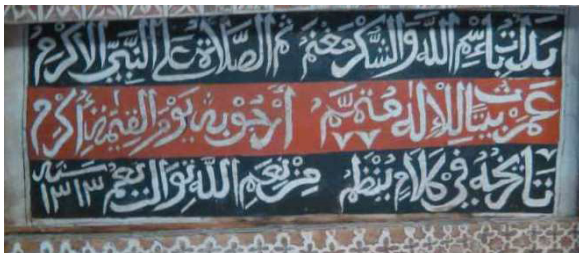 بدأت باسم الله والشكر مغنم ثم الصلاة على النبي الأكرم
عمرت بيتا للإله متمم ٧٧ أرجو به يوم القيمة أكرم
تاريخه في كلام ينظم من نعم الله توالت نعم سنة ١٣١٣